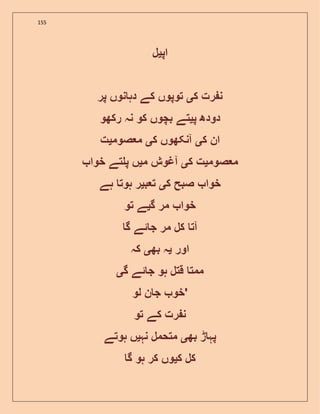 155
اپیل
نفرت کی توپوں کے دہانوں پر
دودھ پیتے بچوں کو نہ رکھو
ان کی آنکھوں کی معصومیت
معصومیت کی آغوش میں پلتے خواب
خواب صبح کی تعبیر ہوتا ہے
خواب مر گیے تو
آتا کل مر جائے گا
اور یہ بھی کہ
ممتا قتل ہو جائے گی
'خوب جان لو
نفرت کے تو
پہاڑ بھی متحمل نہیں ہوتے
کل کیوں کر ہو گا